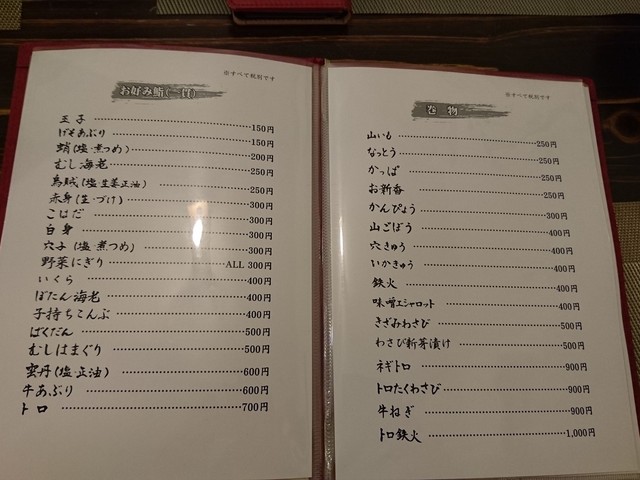 ※すべて税別です
お好み鮨(一貫)
玉子 150円
げそあぶり 150円
蛸(塩·煮つめ) 200円
むし海老 250円
烏賊(塩·生姜正油) 250円
赤身(生·づけ) 300円
こはだ 300円
白身 300円
穴子(塩·煮つめ) 300円
野菜にぎり ALL 300円
いくら 400円
ぼたん海老 400円
子持ちこんぶ 400円
ばくだん 500円
むしはまぐり 500円
雲丹(塩·正油) 600円
牛あぶり 600円
トロ 700円
※すべて税別です
巻物
山いも 250円
なっとう 250円
かっぱ 250円
お新香 250円
かんぴょう 300円
山ごぼう 400円
穴きゅう 400円
いかきゅう 400円
鉄火 400円
味噌エシャロット 400円
きざみわさび 500円
わさび新芽漬け 500円
ネギトロ 900円
トロたくわさび 900円
牛ねぎ 900円
トロ鉄火 1,000円